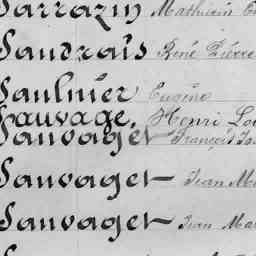 Sarrazin Mathurin
Saudrais René Pierre
Saulnier Eugène
Sauvage, Henri
Sauvaget François
Sauvaget Jean
Sauvaget Jean